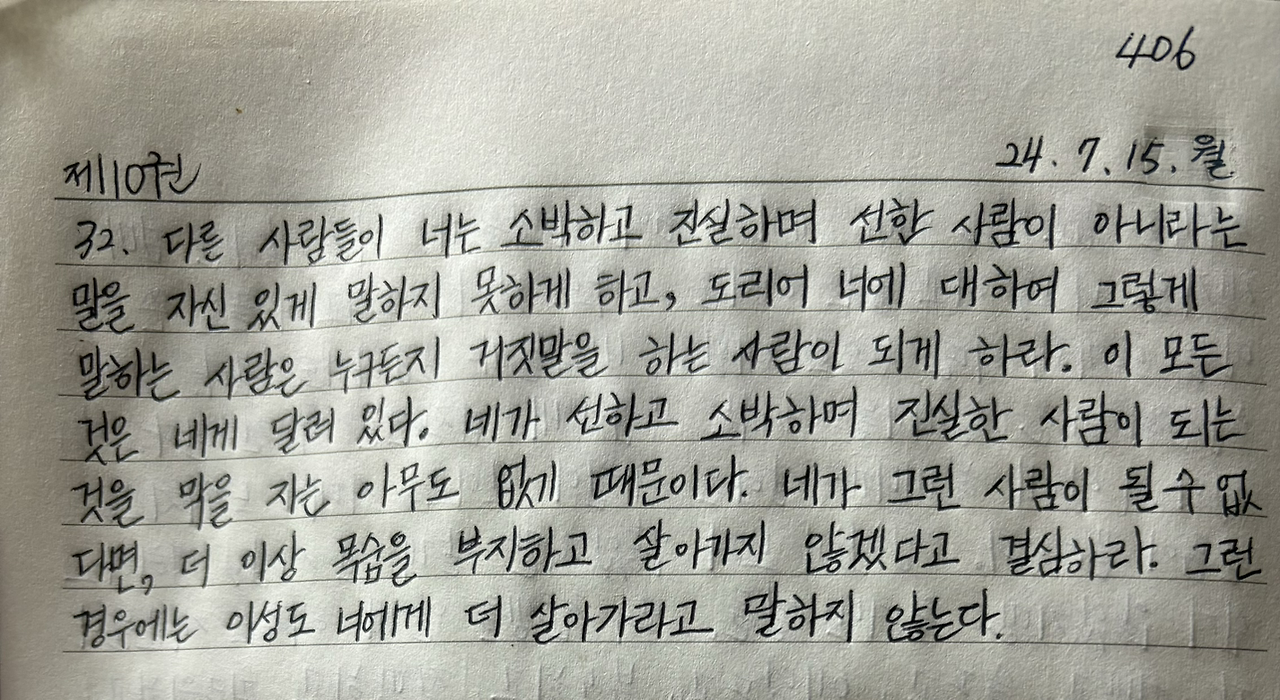 406
24. 7. 15. 월
제110권
32. 다른 사람들이 너는 소박하고 진실하며 선한 사람이 아니라는
말을 자신 있게 말하지 못하게 하고, 도리어 너에 대하여 그렇게
말하는 사람은 누구든지 거짓말을 하는 사람이 되게 하라. 이 모든
것은 네게 달려 있다. 네가 선하고 소박하며 진실한 사람이 되는
것을 막을 자는 아무도 없기 때문이다. 네가 그런 사람이 될 수 없
다면, 더 이상 목숨을 부지하고 살아가지 않겠다고 결심하라. 그런
경우에는 이성도 너에게 더 살아가라고 말하지 않는다.